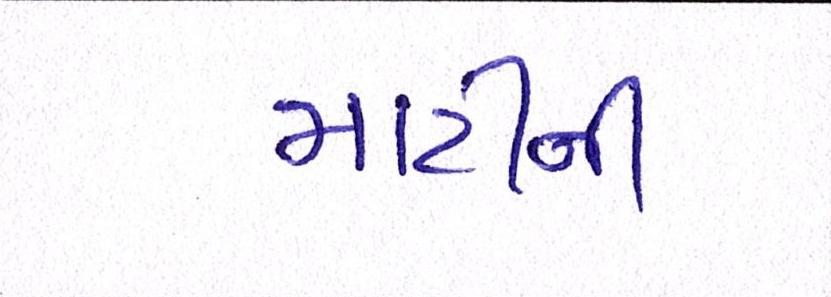 માટીની